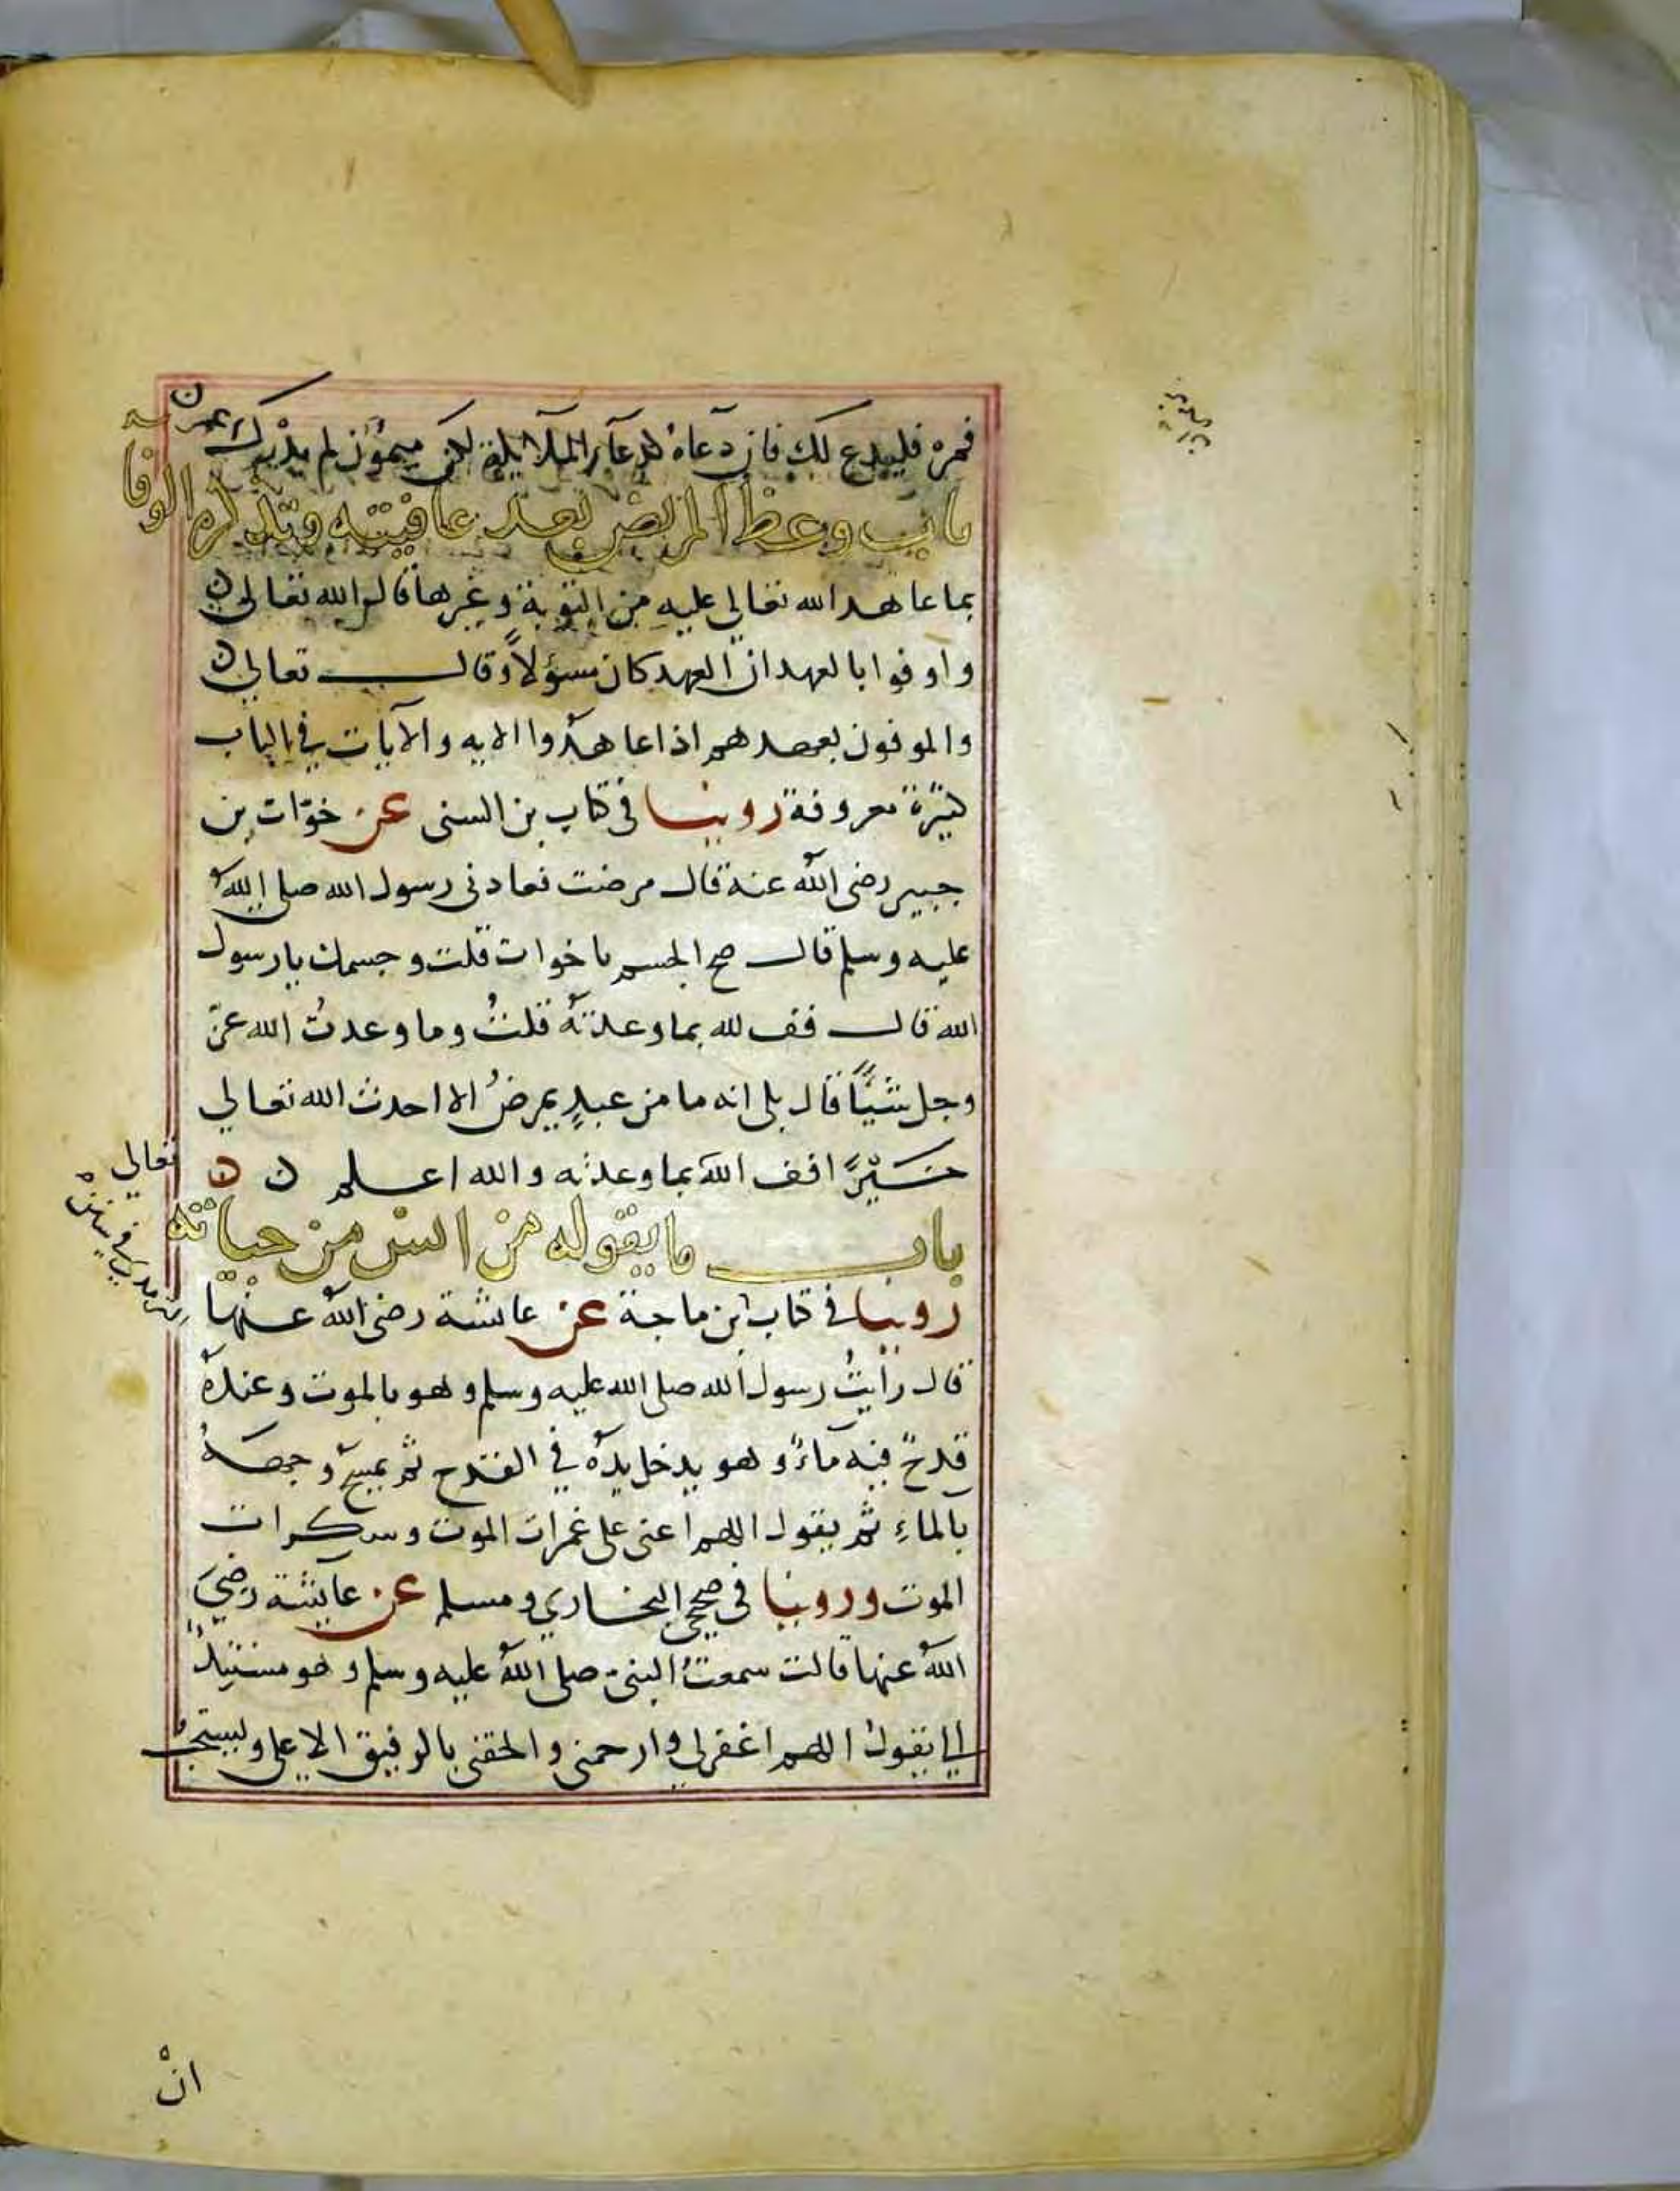 فمره فليدع لك فان دعاه كدعآء الملائكة لكن ميمون لم يدرك عمر ن
باب وعظ المريض بعد عافيته وتذكره الوفا
بما عاهد الله تعالى عليه من التوبة وغيرها قال الله تعالى ن
واوفوا بالعهد ان العهد كان مسؤلاً وقال تعالى ن
والموفون بعهدهم اذا عاهدوا الايه والآيات في الباب
كثيرة معروفة روينا في كتاب بن السنى عن خوّات بن
جبير رضى الله عنه قال مرضت فعادنى رسول الله صلى الله
عليه وسلم قال صح الجسم ياخوات قلت وجسمك يارسول
الله قال فف لله بما وعدته قلتُ وما وعدتُ الله عزّ
وجل شيئًا قال بلى انه ما من عبدٍ يمرضُ الا احدث الله تعالى
خيرًا افف الله بما وعدته والله اعلم ن ن
باب ما يقوله من ايس من حياته
روينا في كتاب ابن ماجة عن عائشة رضى الله عنها
قال رايتُ رسول الله صلى الله عليه وسلم وهو بالموت وعنده
قدحٌ فيه مآءٌ وهو يدخل يده في القدح ثم يمسح وجهه
بالماءِ ثم يقول اللهم اعنى على غمرات الموت وسكرات
الموت وروينا في صحيحي البخاري ومسلم عن عايشة رضيَ
الله عنها قالت سمعتُ النبيّ صلى الله عليه وسلم وهو مستنِدٌ
اليّ يقولُ اللهم اغفر لي وارحمنى والحقنى بالرفيق الاعلى ويستحبُّ
تعالى
الترمذي في سننه
انْ